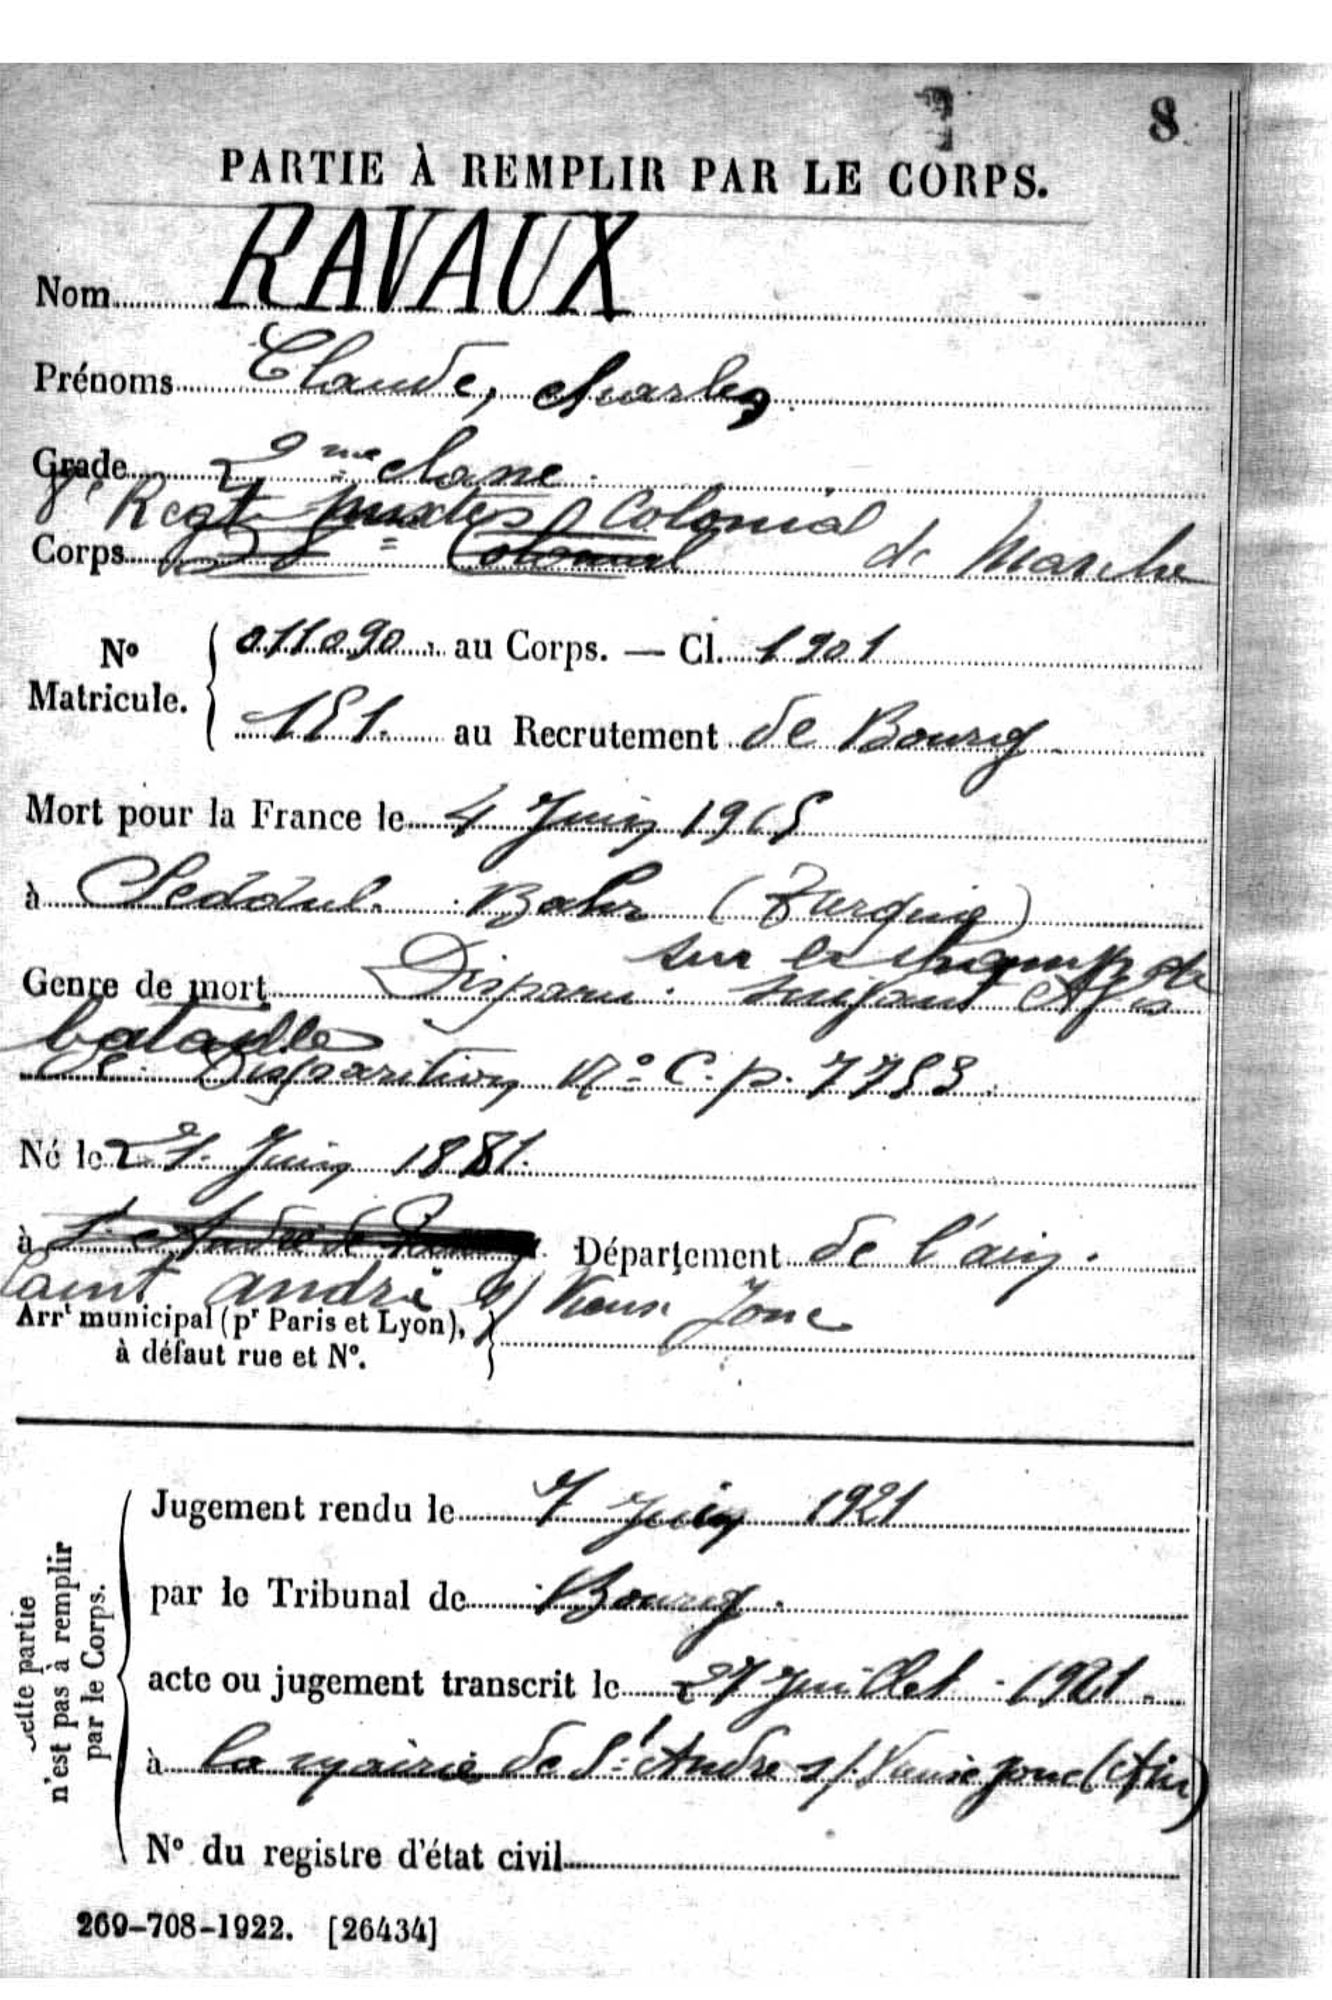 8
PARTIE À REMPLIR PAR LE CORPS.
Nom RAVAUX
Prénoms Claude, Charles
Grade 2me classe
8e Regt mixtes Colonial
Corps Colonial de Marche
No Matricule. { 011090 au Corps. — Cl. 1901
181. au Recrutement de Bourg
Mort pour la France le 4 Juin 1915
à Seddul-Bahr (Turquie)
sur le champ de
Genre de mort Disparu suivant Avis
bataille
de Disparition No C.p. 7753
Né le 21 Juin 1881.
à St André de Département de l'ain.
Saint andré s/ Vieux Jonc
Arrt municipal (pr Paris et Lyon), à défaut rue et No. }
Cette partie n'est pas à remplir par le Corps.
Jugement rendu le 7 Juin 1921
par le Tribunal de Bourg.
acte ou jugement transcrit le 27 Juillet 1921.
à la mairie de St André s/ Vieux jonc (Ain)
No du registre d'état civil
269-708-1922. [26434]